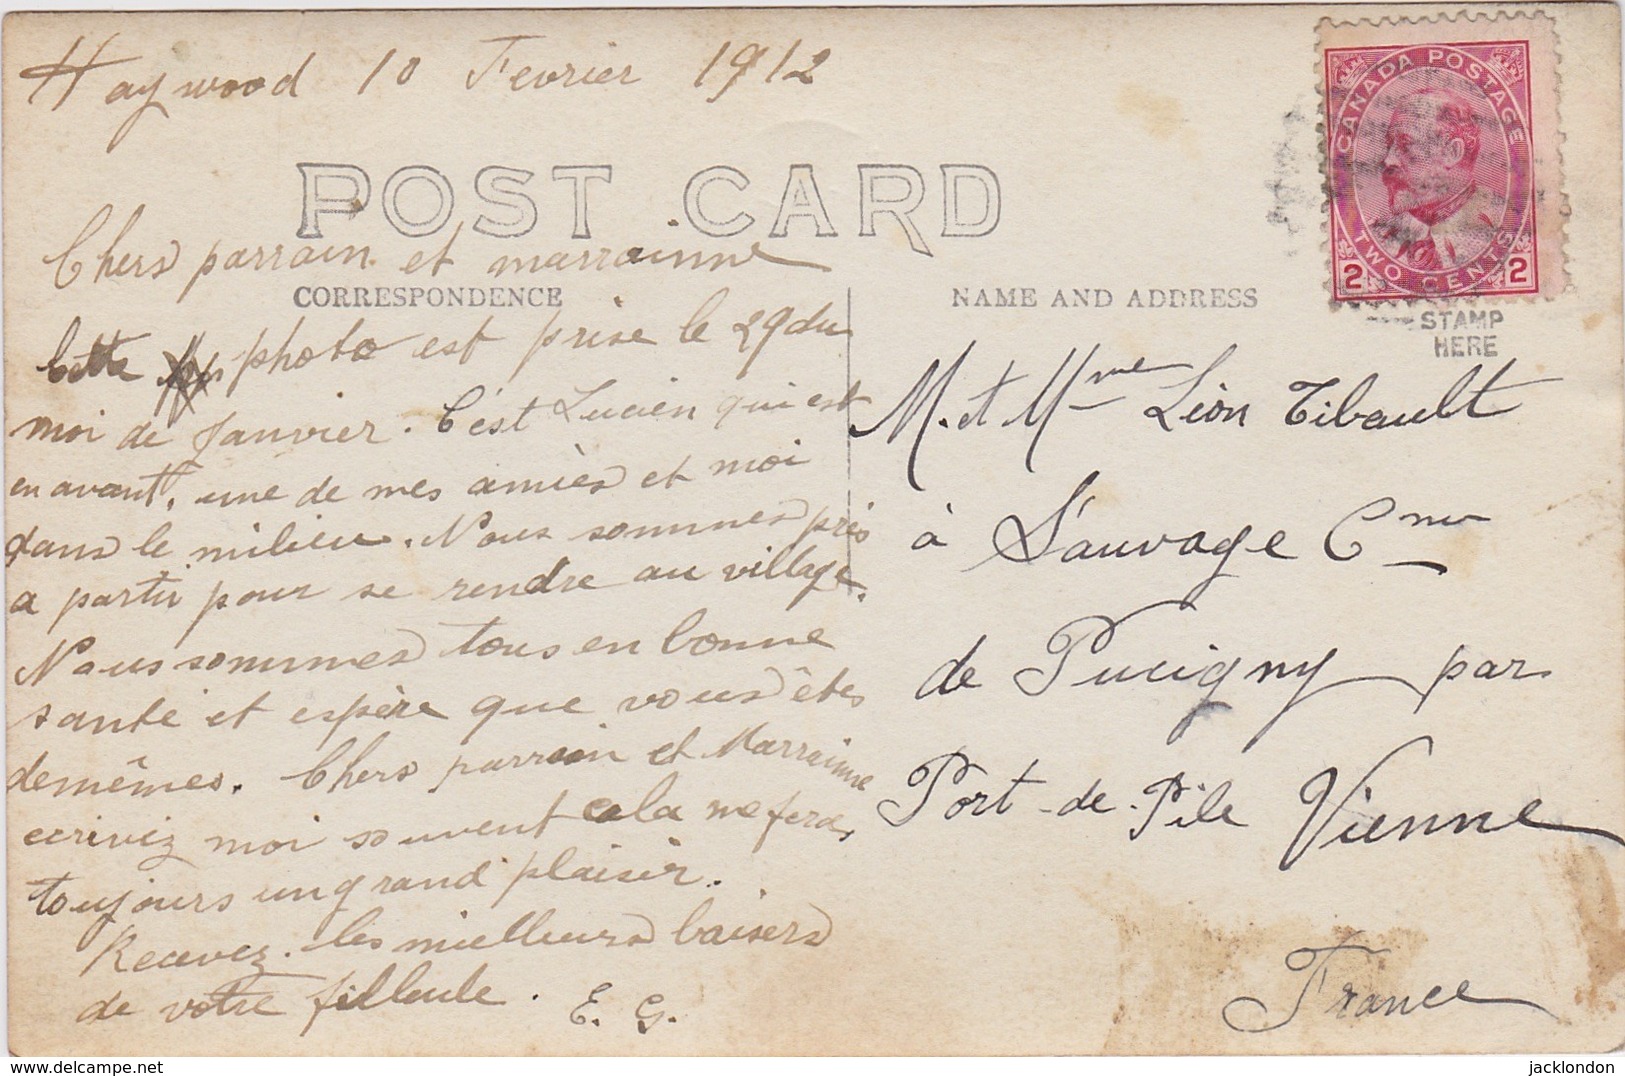 Haywood 10 Fevrier 1912
CANADA POSTAGE
TWO CENTS
2 2
POST CARD
Chers parrain et marrainne
CORRESPONDENCE
NAME AND ADDRESS
STAMP
HERE
Cette photo est prise le 29 du
moi de Janvier. C'est Lucien qui est
en avant, une de mes amies et moi
dans le milieu. Nous sommes près
a partir pour se rendre au village.
Nous sommes tous en bonne
santé et espère que vous êtes
demêmes. Chers parrain et Marrainne
ecrivez moi souvent cela me feras
toujours un grand plaisir.
Recevez les meilleurs baisers
de votre filleule. E. G.
M. et Mme Léon Tibault
à Sauvage Cne
de Pucigny par
Port-de-Pile Vienne
France
jacklondon